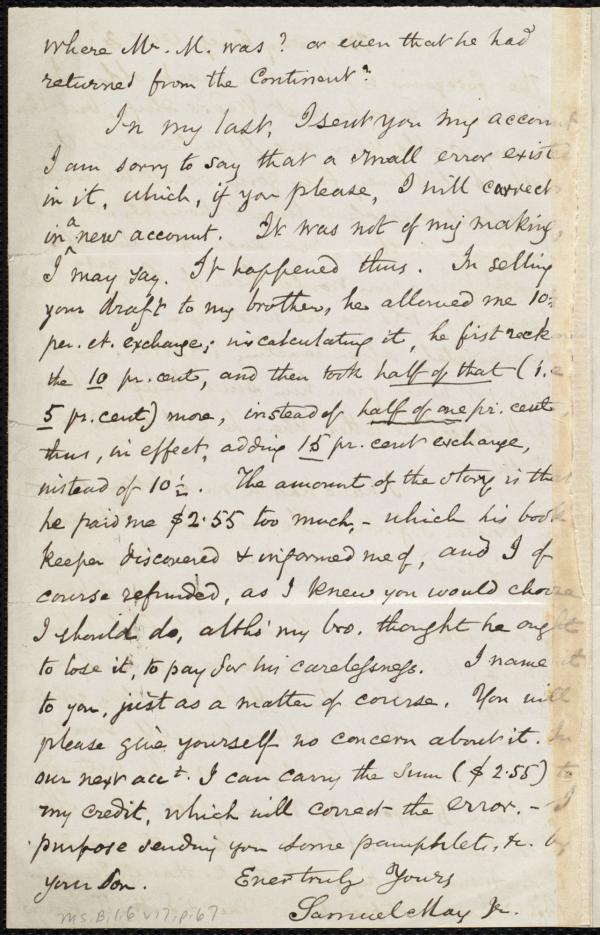 where Mr. M. was? or even that he had
returned from the Continent?
In my last, I sent you my account
I am sorry to say that a small error exists
in it, which, if you please, I will correct
in a new account. It was not of my making,
I may say. It happened thus. In selling
your draft to my brother, he allowed me 10½
per. ct. exchange; in calculating it, he first reck
the 10 pr. cent, and then took half of that (i.e
5 pr. cent) more, instead of half of one pr. cent,
thus, in effect, adding 15 pr. cent exchange,
instead of 10½. The amount of the story is that
he paid me $2.55 too much, - which his book
keeper discovered & informed me of, and I of
course refunded, as I knew you would choose
I should do, altho' my bro. thought he ought
to lose it, to pay for his carelessness. I name it
to you, just as a matter of course. You will
please give yourself no concern about it. In
our next acct. I can carry the sum ($2.55) to
my credit, which will correct the error. - I
purpose sending you some pamphlets, &c. by
your Son. Ever truly Yours
Samuel May Jr.
Ms. B.1.6 v.17, p.67